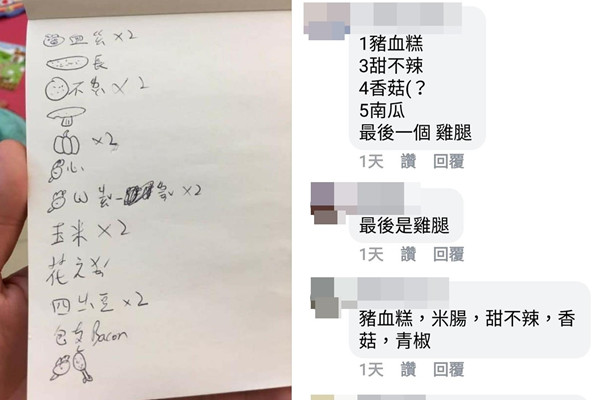 血 ×2
長
不 ×2
×2
心
×2
玉米 ×2
花
四 豆 ×2
包 Bacon
1豬血糕
3甜不辣
4香菇(？
5南瓜
最後一個 雞腿
1天 讚 回覆
最後是雞腿
1天 讚 回覆
豬血糕，米腸，甜不辣，香
菇，青椒
1天 讚 回覆